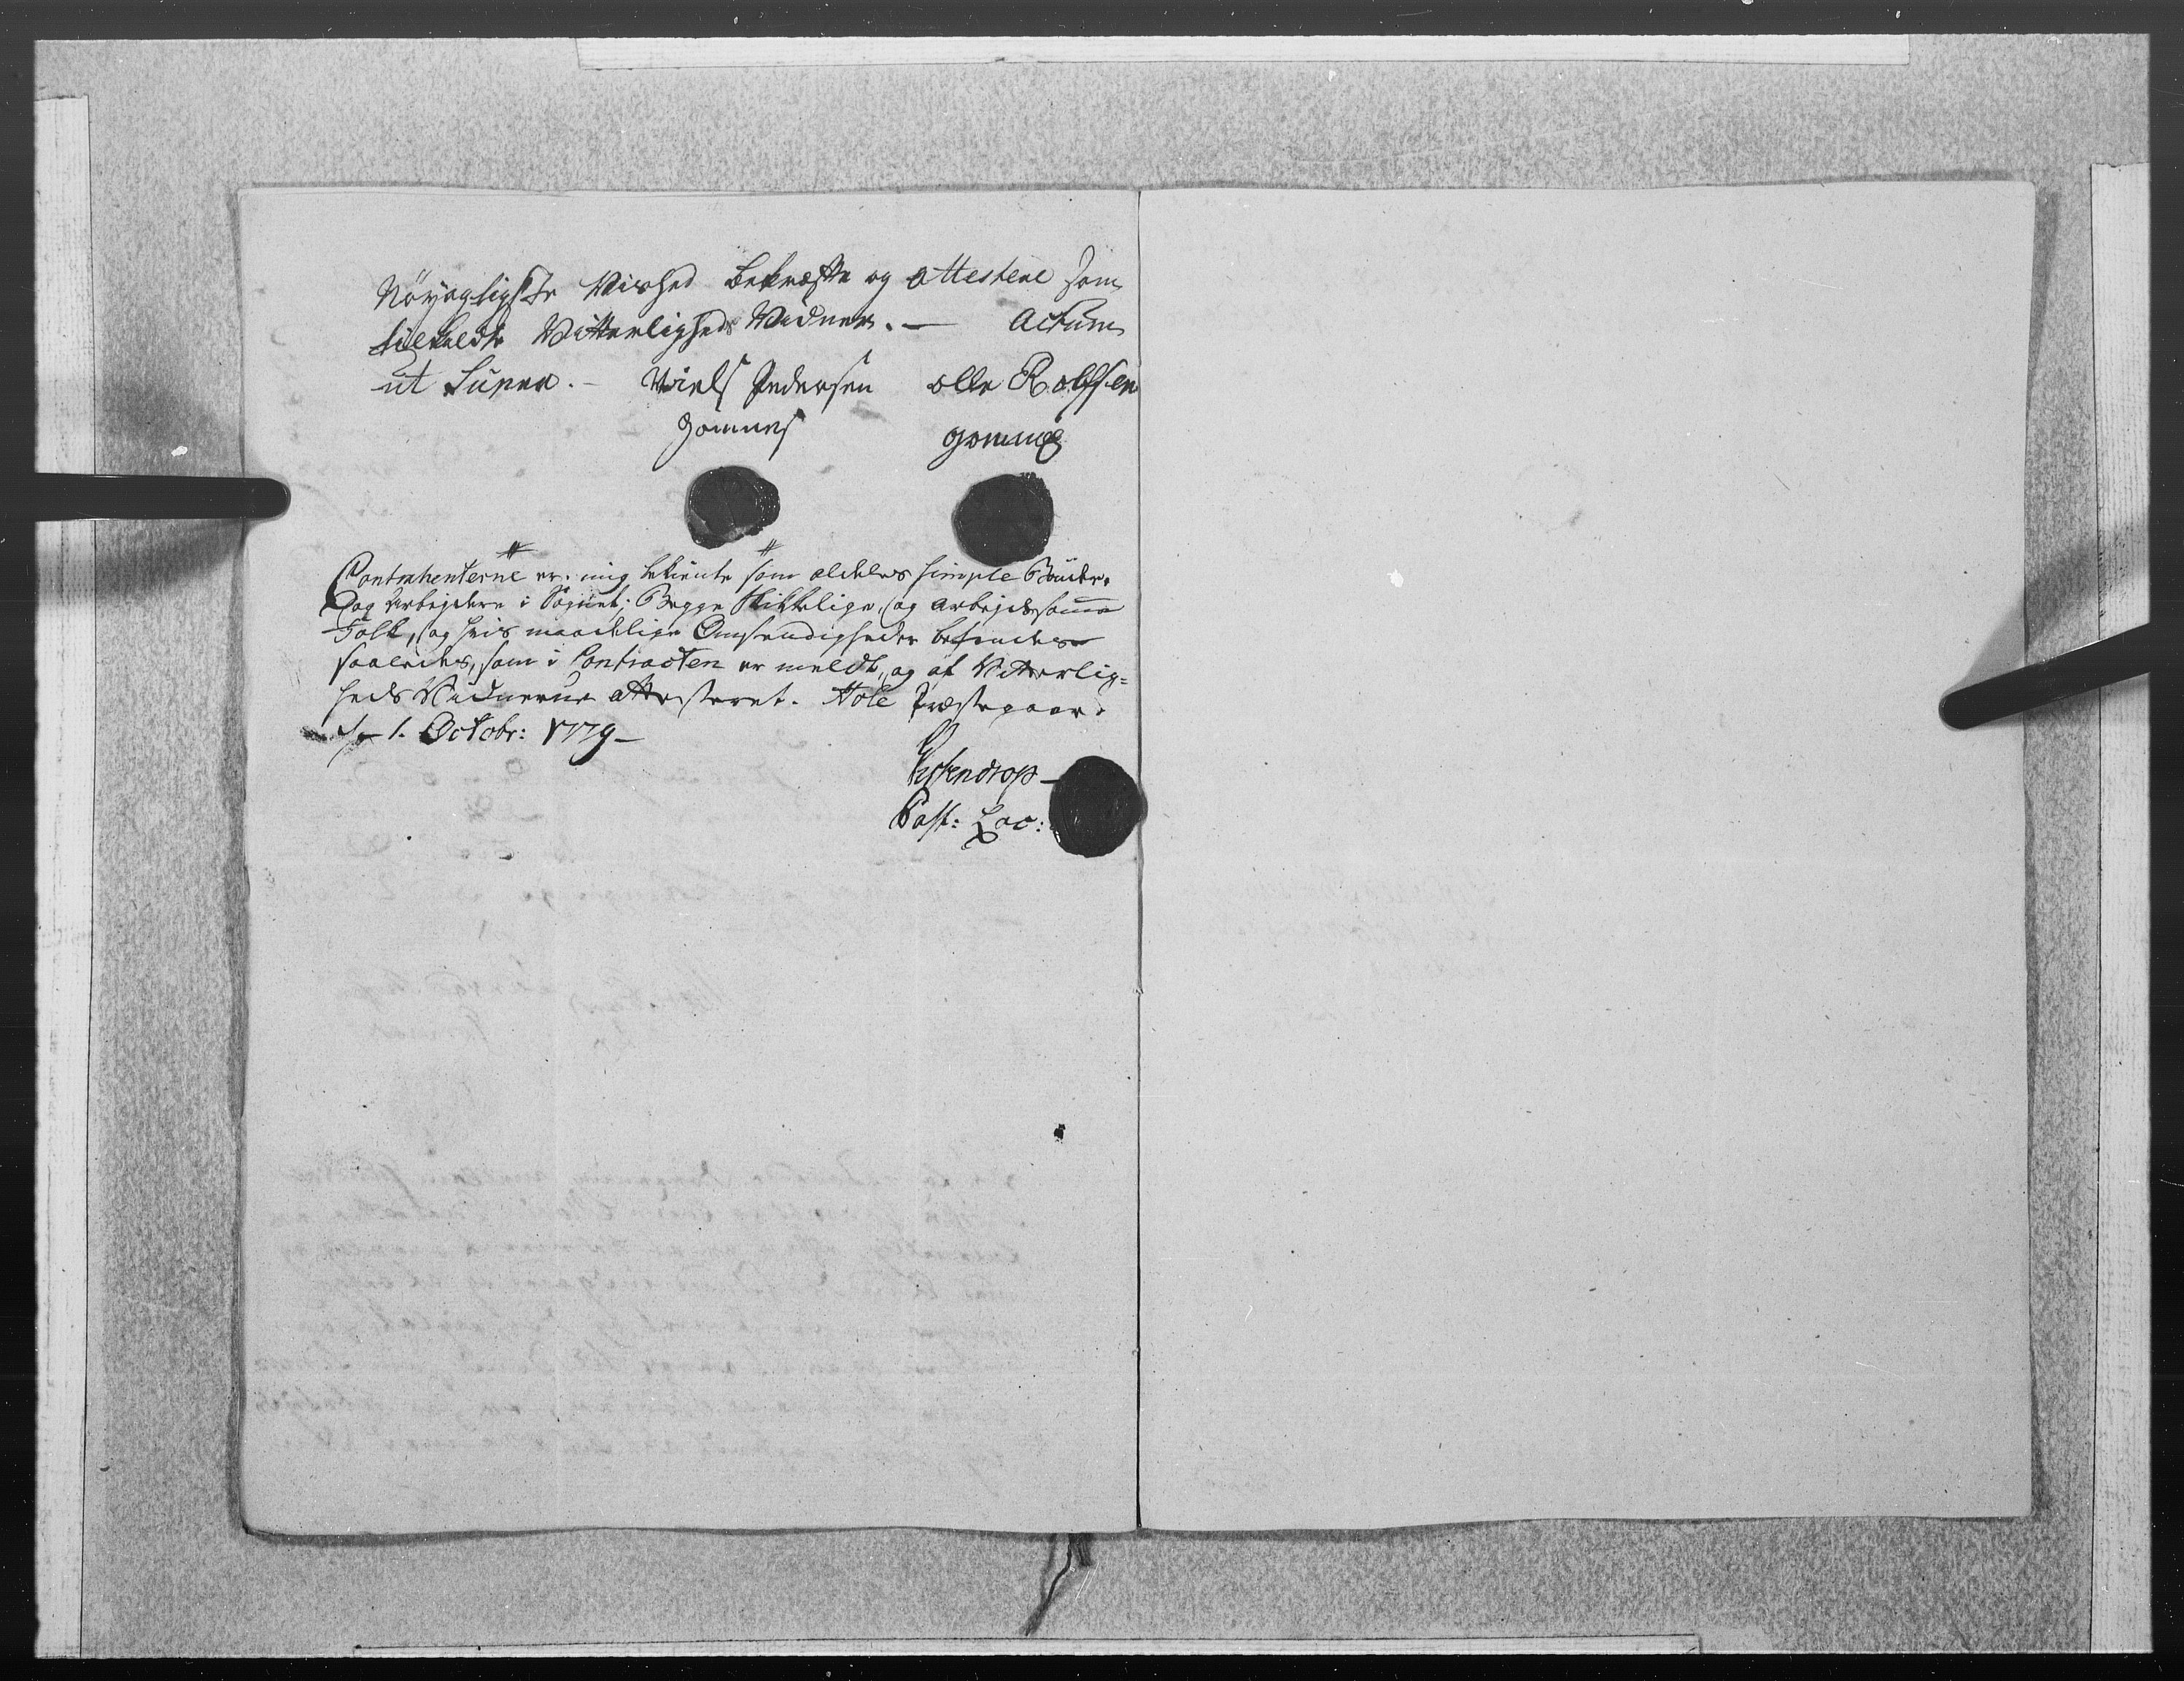 Nöyagtigste Vished bekræfte og attestere som
tilkaldte Vitterligheds Vidner. — Actum
ut Supra. — Niels Pedersen olle Rolfsen
Gomnes gomnes
Contrahenterne er mig bekiente som aldeles simple Bönder
og Arbejdere i Sognet; Begge skikkelige, og arbejdsomme
Folk, og hvis maadelige Omstendigheder befindes
saaledes, som i Contracten er meldt, og af Vitterlig=
heds Vidnerne attesteret. Hole Præstegaar.
d. 1. Octobr: 1779 —
Past: Loc: